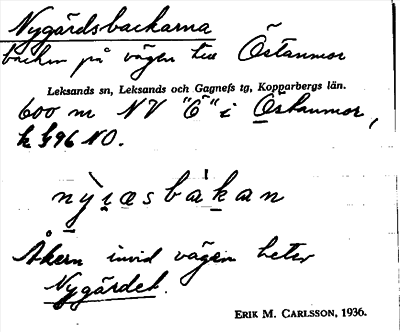 Nygärdsbackarna
backen på vägen till Östanmor
Leksands sn, Leksands och Gagnefs tg, Kopparbergs län.
600 m NV "Ö" i Östanmor,
k 96 NO.
Åkern invid vägen heter
Nygärdet.
ERIK M. CARLSSON, 1936.